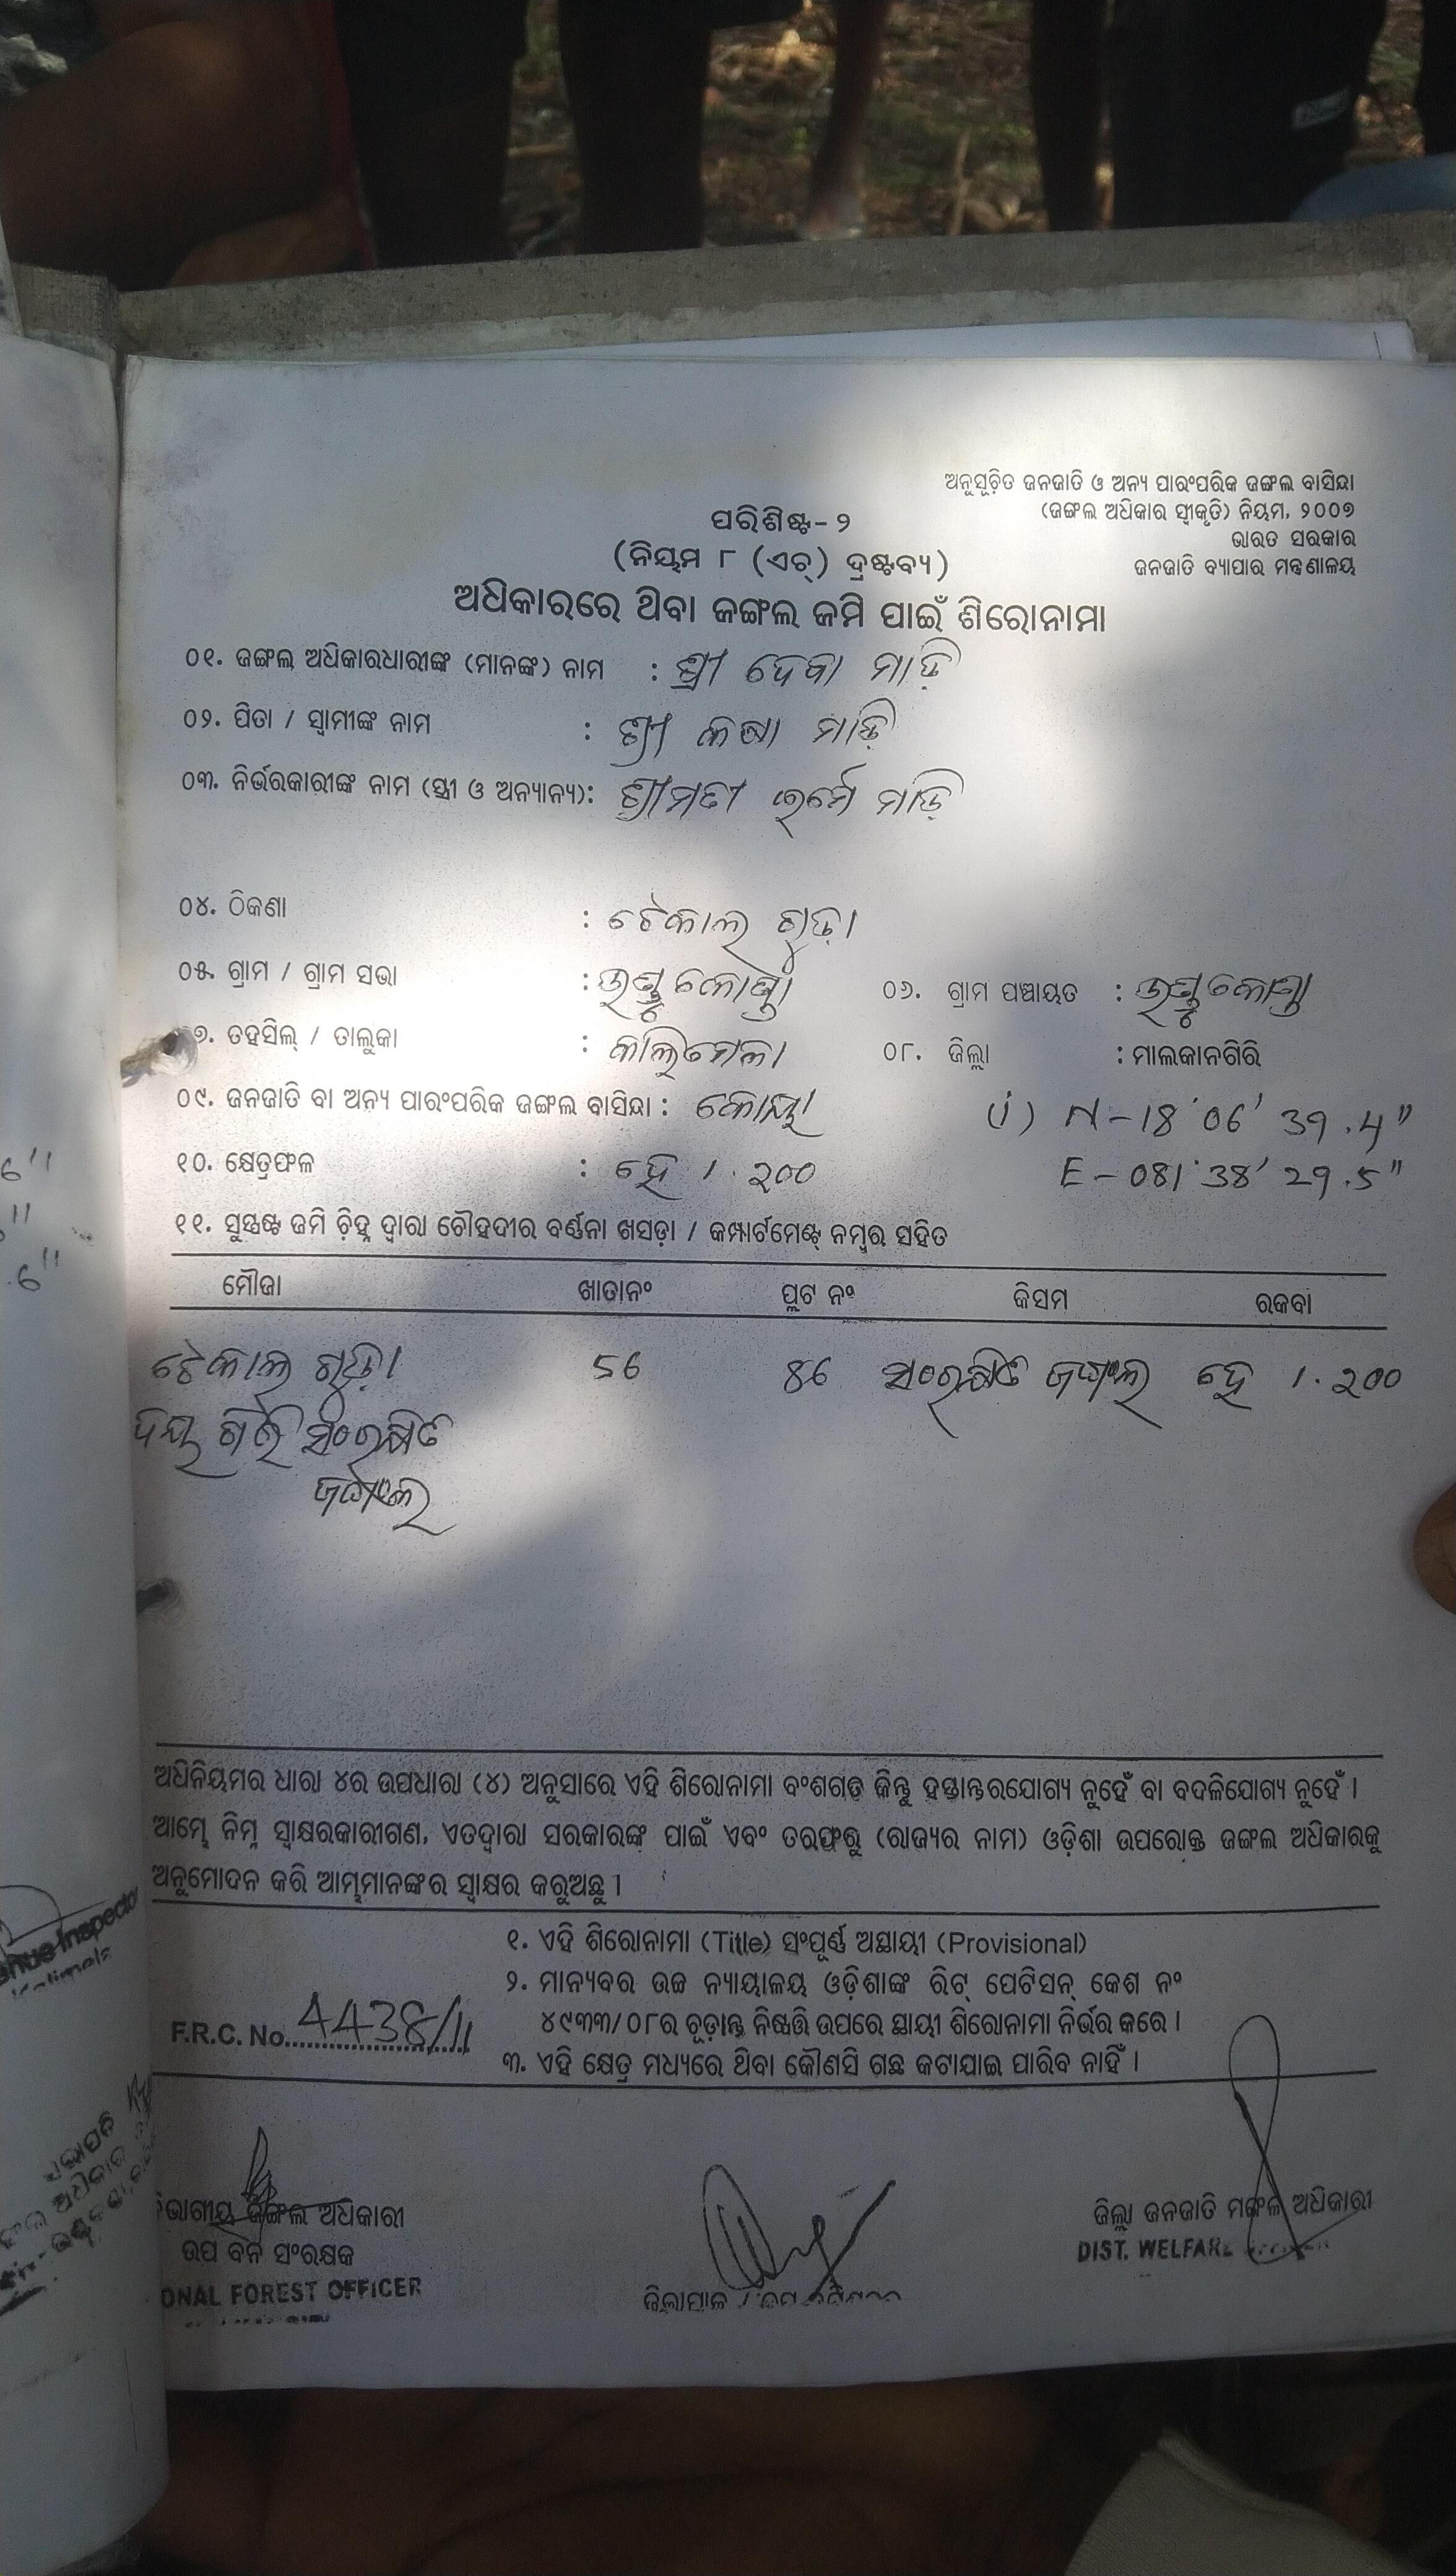 ଅନୁସୂଚିତ ଜନଜାତି ଓ ଅନ୍ୟ ପାରଂପରିକ ଜଙ୍ଗଲ ବାସିନ୍ଦା
(ଜଙ୍ଗଲ ଅଧିକାର ସ୍ୱୀକୃତି) ନିୟମ, ୨୦୦୭
ଭାରତ ସରକାର
ଜନଜାତି ବ୍ୟାପାର ମନ୍ତ୍ରଣାଳୟ
ପରିଶିଷ୍ଟ-୨
(ନିୟମ ୮ (ଏଚ୍) ଦ୍ରଷ୍ଟବ୍ୟ)
ଅଧିକାରରେ ଥିବା ଜଙ୍ଗଲ ଜମି ପାଇଁ ଶିରୋନାମା
୦୧. ଜଙ୍ଗଲ ଅଧିକାରଧାରୀଙ୍କ (ମାନଙ୍କ) ନାମ : ଶ୍ରୀ ଦେବା ମାଡ଼ି
୦୨. ପିତା / ସ୍ୱାମୀଙ୍କ ନାମ : ଶ୍ରୀ ମାଡ଼ି
୦୩. ନିର୍ଭରକାରୀଙ୍କ ନାମ (ସ୍ତ୍ରୀ ଓ ଅନ୍ୟାନ୍ୟ): ଶ୍ରୀମତୀ ମାଡ଼ି
୦୪. ଠିକଣା : ଟେକାଲ ଗୁଡ଼ା
୦୫. ଗ୍ରାମ / ଗ୍ରାମ ସଭା :
୦୬. ଗ୍ରାମ ପଞ୍ଚାୟତ :
୭. ତହସିଲ୍ / ତାଲୁକା : କାଲିମେଳା
୦୮. ଜିଲ୍ଲା : ମାଲକାନଗିରି
୦୯. ଜନଜାତି ବା ଅନ୍ୟ ପାରଂପରିକ ଜଙ୍ଗଲ ବାସିନ୍ଦା : କୋୟା
(i) N-18°06' 39.4"
E-081°38' 29.5"
୧୦. କ୍ଷେତ୍ରଫଳ : ହେ ୧.୨୦୦
୧୧. ସୁସ୍ପଷ୍ଟ ଜମି ଚିହ୍ନ ଦ୍ୱାରା ଚୌହଦୀର ବର୍ଣ୍ଣନା ଖସଡ଼ା / କମ୍ପାର୍ଟମେଣ୍ଟ୍ ନମ୍ବର ସହିତ
ମୌଜା ଖାତାନଂ ପ୍ଲଟ ନଂ କିସମ ରକବା
ଟେକାଲ ଗୁଡ଼ା 56 86 ସଂରକ୍ଷିତ ଜଙ୍ଗଲ ହେ ୧.୨୦୦
ଗିରି ସଂରକ୍ଷିତ
ଜଙ୍ଗଲ
ଅଧିନିୟମର ଧାରା ୪ର ଉପଧାରା (୪) ଅନୁସାରେ ଏହି ଶିରୋନାମା ବଂଶଗତ କିନ୍ତୁ ହସ୍ତାନ୍ତରଯୋଗ୍ୟ ନୁହେଁ ବା ବଦଳିଯୋଗ୍ୟ ନୁହେଁ ।
ଆମ୍ଭେ ନିମ୍ନ ସ୍ୱାକ୍ଷରକାରୀଗଣ, ଏତଦ୍ୱାରା ସରକାରଙ୍କ ପାଇଁ ଏବଂ ତରଫରୁ (ରାଜ୍ୟର ନାମ) ଓଡ଼ିଶା ଉପରୋକ୍ତ ଜଙ୍ଗଲ ଅଧିକାରକୁ
ଅନୁମୋଦନ କରି ଆମ୍ଭମାନଙ୍କର ସ୍ୱାକ୍ଷର କରୁଅଛୁ ।
୧. ଏହି ଶିରୋନାମା (Title) ସଂପୂର୍ଣ୍ଣ ଅସ୍ଥାୟୀ (Provisional)
୨. ମାନ୍ୟବର ଉଚ୍ଚ ନ୍ୟାୟାଳୟ ଓଡ଼ିଶାଙ୍କ ରିଟ୍ ପେଟିସନ୍ କେଶ ନଂ
୪୯୩୩/୦୮ର ଚୂଡ଼ାନ୍ତ ନିଷ୍ପତ୍ତି ଉପରେ ସ୍ଥାୟୀ ଶିରୋନାମା ନିର୍ଭର କରେ ।
F.R.C. No. 4438/11
୩. ଏହି କ୍ଷେତ୍ର ମଧ୍ୟରେ ଥିବା କୌଣସି ଗଛ କଟାଯାଇ ପାରିବ ନାହିଁ ।
ଜଙ୍ଗଲ ଅଧିକାରୀ
ଉପ ବନ ସଂରକ୍ଷକ
ONAL FOREST OFFICER
ଜିଲ୍ଲାପାଳ /
ଜିଲ୍ଲା ଜନଜାତି ମଙ୍ଗଳ ଅଧିକାରୀ
DIST. WELFARE